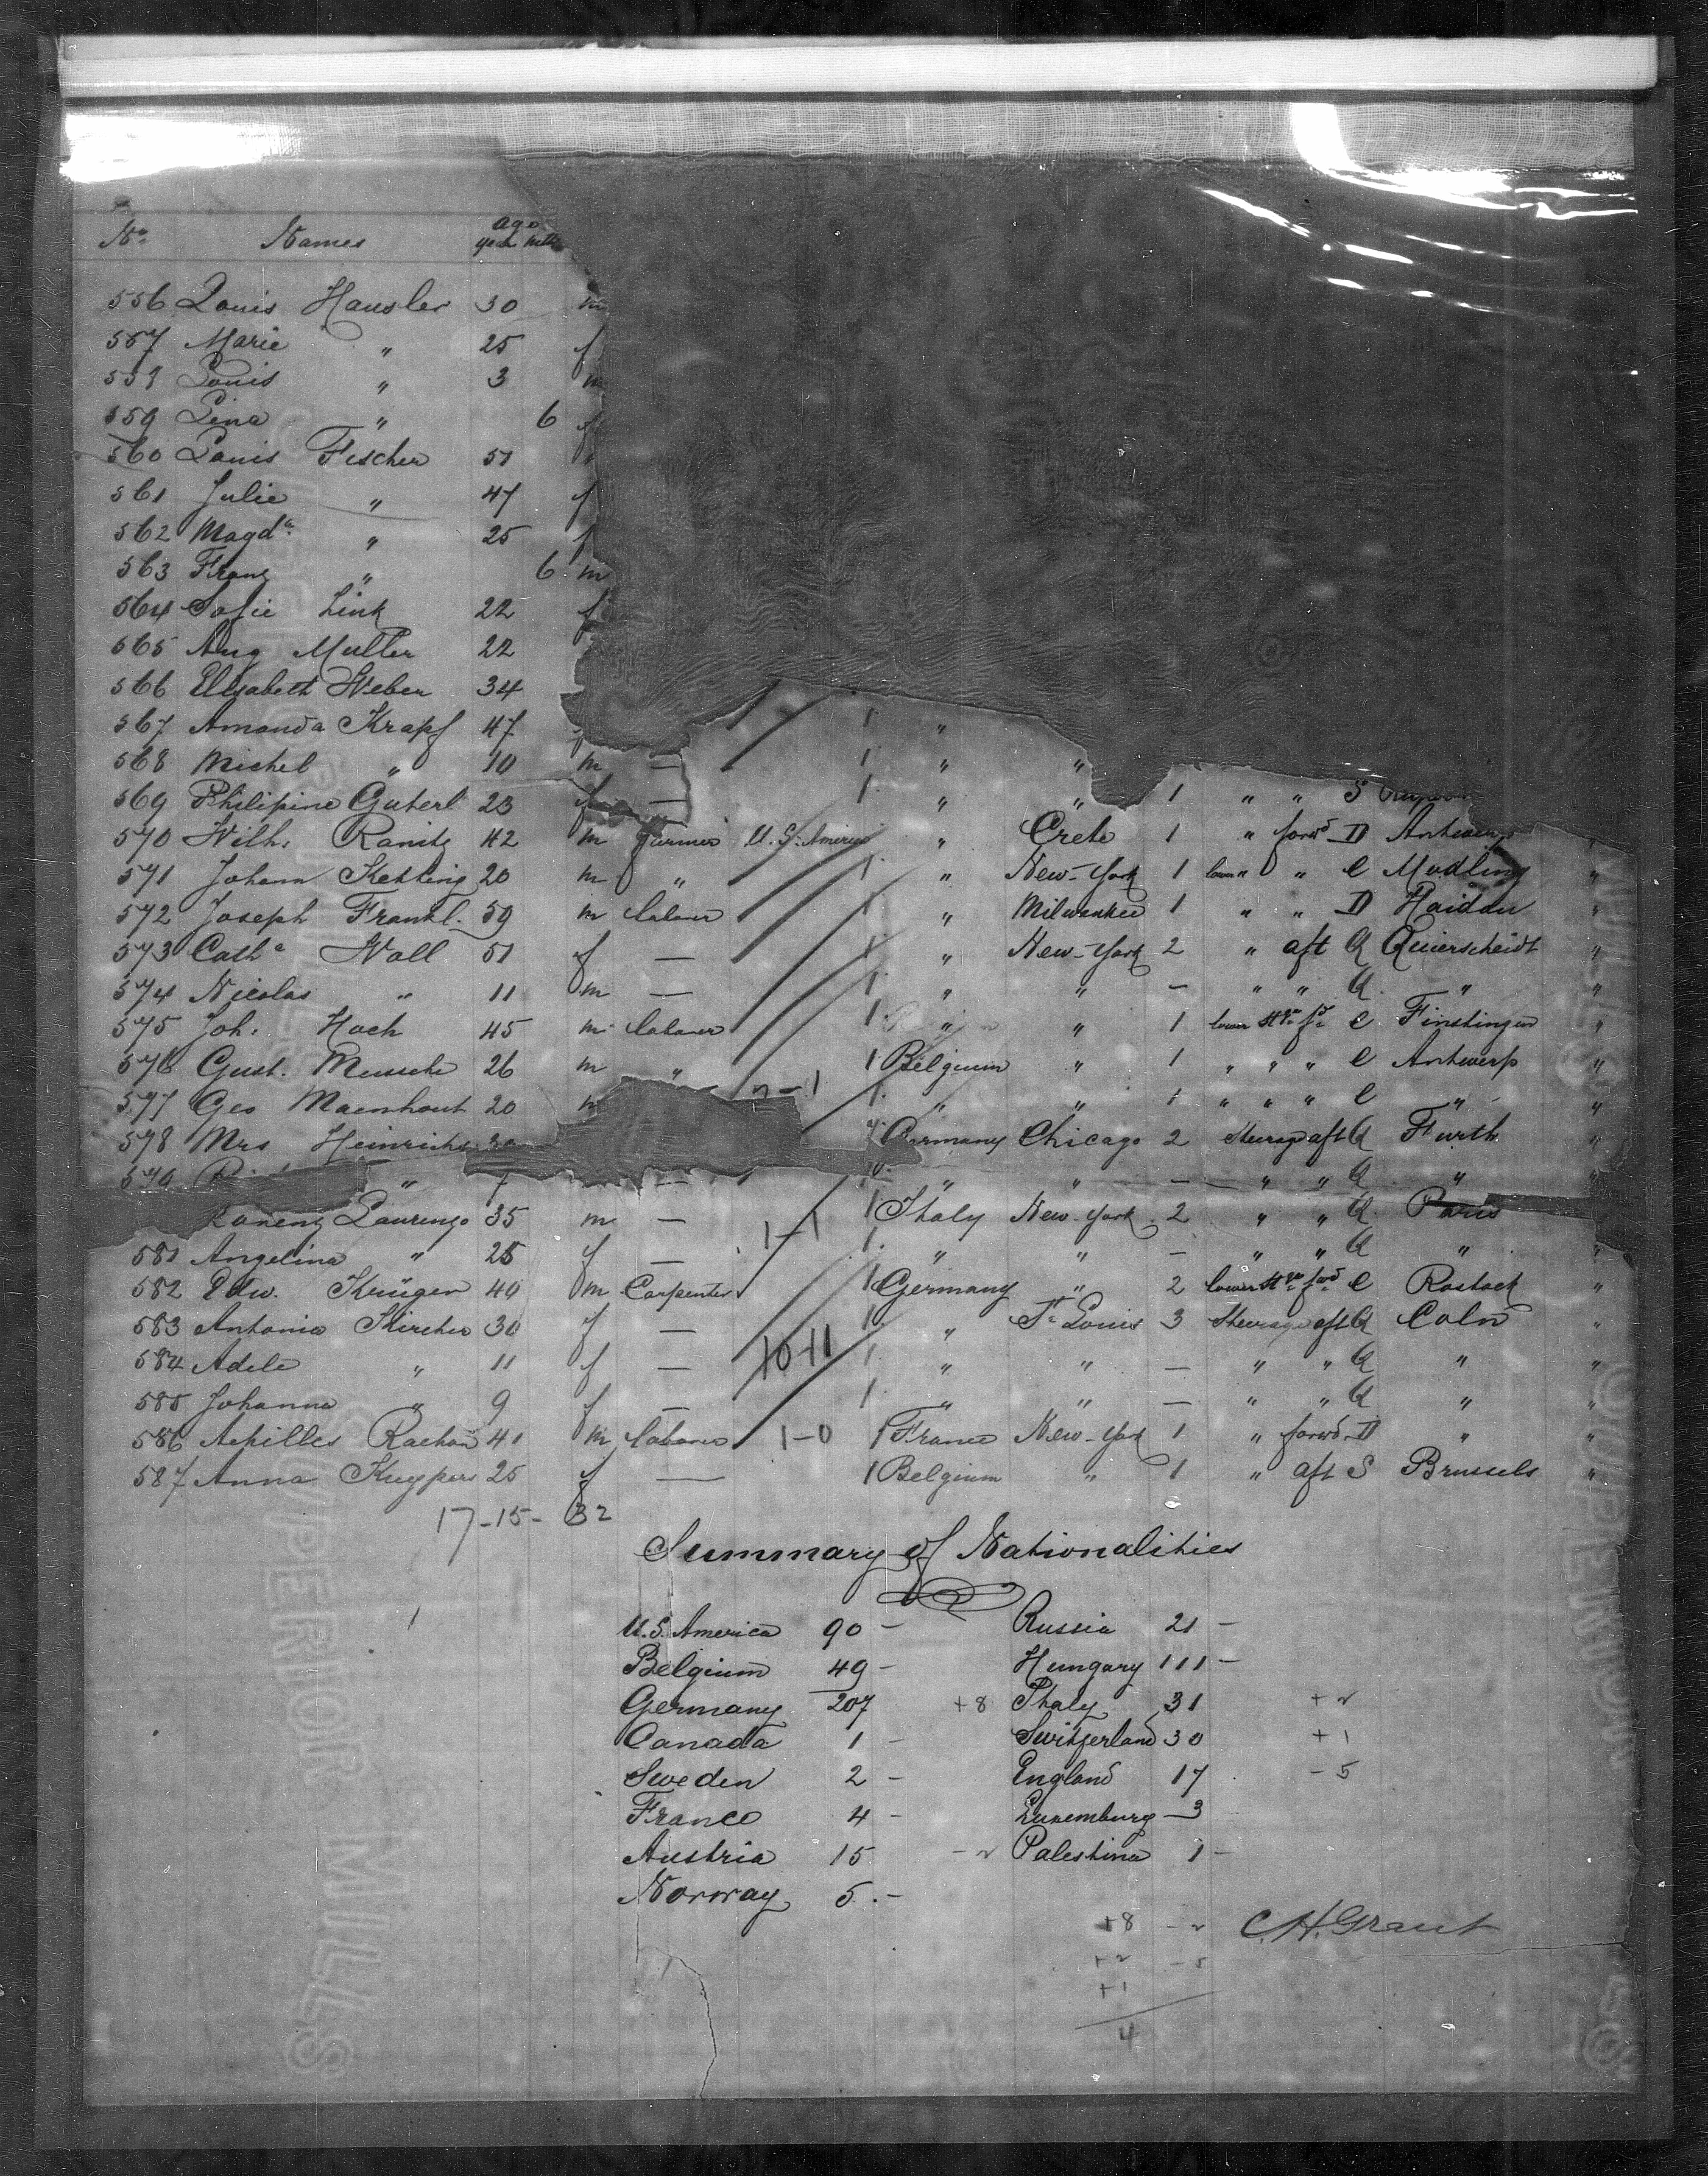 No. Names age year mths
556 Louis Hausler 30 m
557 Marie " 25 f
558 Louis " 3 m
559 Lina " 6 f
560 Louis Fischer 51
561 Julie " 47 f
562 Magda " 25 f
563 Franz " 6 m
564 Sofie Link 22 f
565 Aug Muller 22
566 Elisabeth Weber 34
567 Amanda Krapf 47 1 "
568 Michel " 10 m — 1 " "
569 Philipine Guterl 23 f — 1 " " 1 " " S
570 Wilh. Ranitz 42 m Farmer U.S. America " Crete 1 " forwd D Antwerp
571 Johann Ketting 20 m " 1 " New-York 1 lower " " C Modling "
572 Joseph Frankl. 59 m laborer 1 " Milwaukee 1 " " D Haidau "
573 Catha Woll 51 f — 1 " New-York 2 " aft Q Quierscheidt "
574 Nicolas " 11 m — 1 " " — " " Q " "
575 Joh. Hoch 45 m laborer 1 " " 1 lower stge fd C Finstingen "
576 Gust. 26 m " 1 Belgium " 1 " " " C Antwerp "
577 Geo Maenhout 20 m 1 " " 1 " " " C " "
578 Mrs Heinrichs 1 Germany Chicago 2 Steerage aft Q Furth "
579 " — " " — " " Q " "
Lorenz Laurenzo 35 m — 1 Italy New-York 2 " " Q Paris
581 Angelina " 25 f — 1-1 1 " " — " " Q " "
582 Edw. Krüger 40 m Carpenter 1 Germany " 2 lower stge fwd C Rostock "
583 Antonia Kircher 30 f — 1 " St Louis 3 Steerage aft Q Coln "
584 Adele " 11 f — 10-11 1 " " — " " Q " "
585 Johanna " 9 f — 1 " " — " " Q " "
586 Achilles 41 m laborer 1-0 1 France New-York 1 " forwd D " "
587 Anna Kuypers 25 f — 1 Belgium " 1 " aft S Brussels "
17-15- 32
Summary of Nationalities
U.S. America 90 - Russia 21 -
Belgium 49 - Hungary 111 -
Germany 207 +8 Italy 31 +2
Canada 1 - Switzerland 30 +1
Sweden 2 - England 17 -5
France 4 - Luxemburg 3
Austria 15 -2 Palestina 1 -
Norway 5 -
+8 -2 C.H. Grant
+2 -5
+1
4